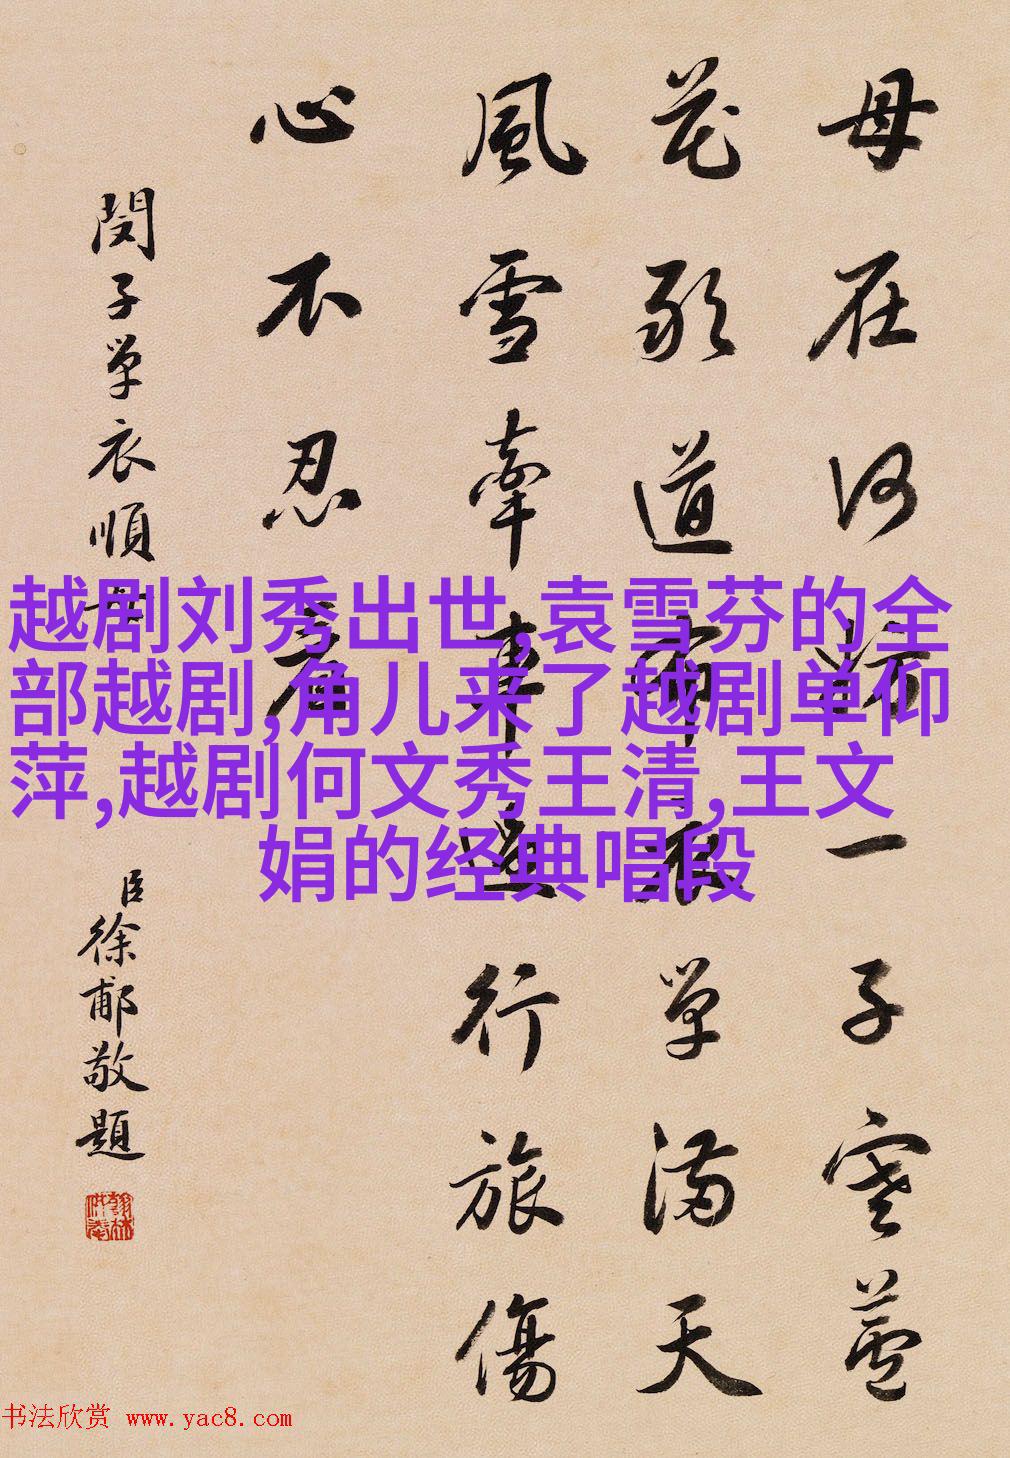 母在何妨一子寒蘆
花敢道布衣單滿天
風雪牽車行旅傷
心不忍看
閔子單衣順母
臣徐郙敬題
越剧刘秀出世,袁雪芬的全
部越剧,角儿来了越剧单仰
萍,越剧何文秀王清,王文
娟的经典唱段
书法欣赏 www.yac8.com